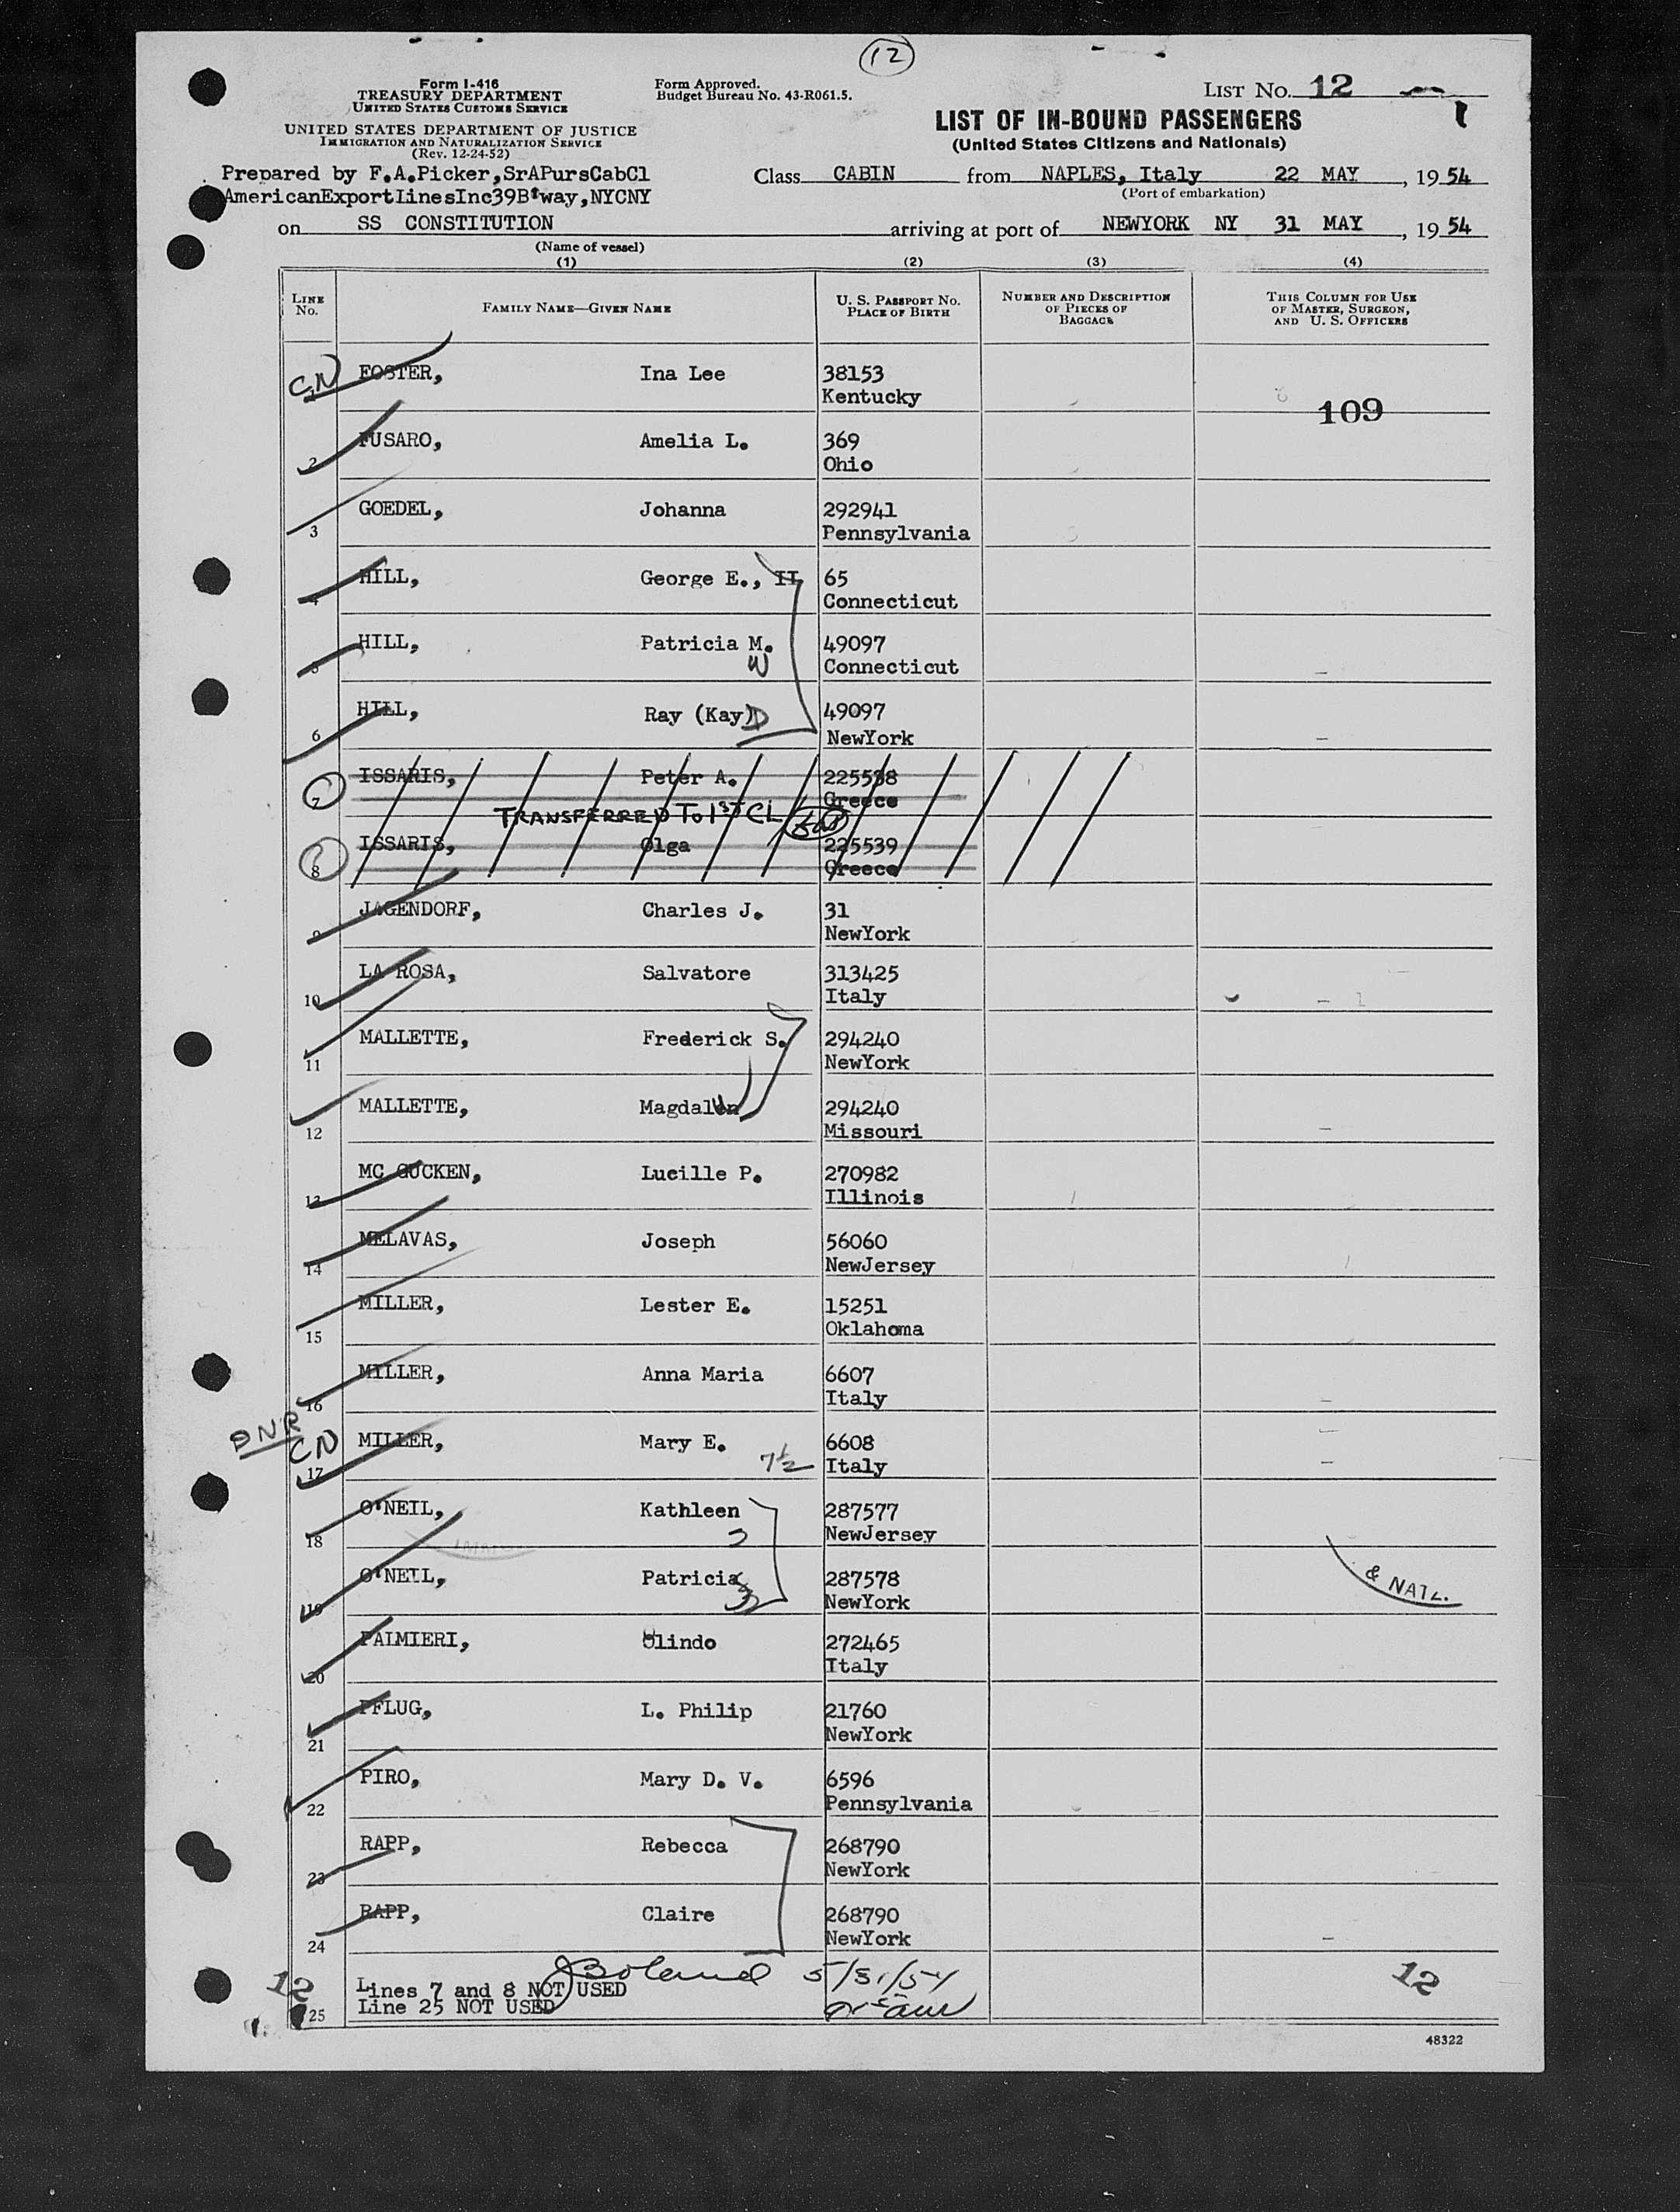 12
Form I-416
TREASURY DEPARTMENT
UNITED STATES CUSTOMS SERVICE
UNITED STATES DEPARTMENT OF JUSTICE
IMMIGRATION AND NATURALIZATION SERVICE
(Rev. 12-24-52)
Form Approved.
Budget Bureau No. 43-R061.5.
LIST NO. 12
LIST OF IN-BOUND PASSENGERS
(United States Citizens and Nationals)
Prepared by F.A.Picker,SrAPursCabCl
AmericanExportLinesInc39B'way,NYCNY
Class CABIN from NAPLES, Italy 22 MAY, 1954
(Port of embarkation)
on SS CONSTITUTION arriving at port of NEWYORK NY 31 MAY, 1954
(Name of vessel)
(1) (2) (3) (4)
LINE NO. FAMILY NAME—GIVEN NAME U. S. PASSPORT NO. PLACE OF BIRTH NUMBER AND DESCRIPTION OF PIECES OF BAGGAGE THIS COLUMN FOR USE OF MASTER, SURGEON, AND U. S. OFFICERS
CN FOSTER, Ina Lee 38153
Kentucky
109
2 FUSARO, Amelia L. 369
Ohio
3 GOEDEL, Johanna 292941
Pennsylvania
4 HILL, George E., II 65
Connecticut
5 HILL, Patricia M. 49097
W Connecticut
6 HILL, Ray (Kay) D 49097
NewYork
7 ISSARIS, Peter A. 225538
Greece
TRANSFERRED TO 1ST CL
8 ISSARIS, Olga 225539
Greece
9 JAGENDORF, Charles J. 31
NewYork
10 LA ROSA, Salvatore 313425
Italy
11 MALLETTE, Frederick S. 294240
NewYork
12 MALLETTE, Magdalen 294240
Missouri
13 MC GUCKEN, Lucille P. 270982
Illinois
14 MELAVAS, Joseph 56060
NewJersey
15 MILLER, Lester E. 15251
Oklahoma
16 MILLER, Anna Maria 6607
Italy
DNR
CN
17 MILLER, Mary E. 6608
7½ Italy
18 O'NEIL, Kathleen 287577
NewJersey
19 O'NEIL, Patricia 287578
NewYork
& NATL.
20 PALMIERI, Olindo 272465
Italy
21 PFLUG, L. Philip 21760
NewYork
22 PIRO, Mary D. V. 6596
Pennsylvania
23 RAPP, Rebecca 268790
NewYork
24 RAPP, Claire 268790
NewYork
12 Boland 5/31/54 12
Lines 7 and 8 NOT USED
25 Line 25 NOT USED
48322